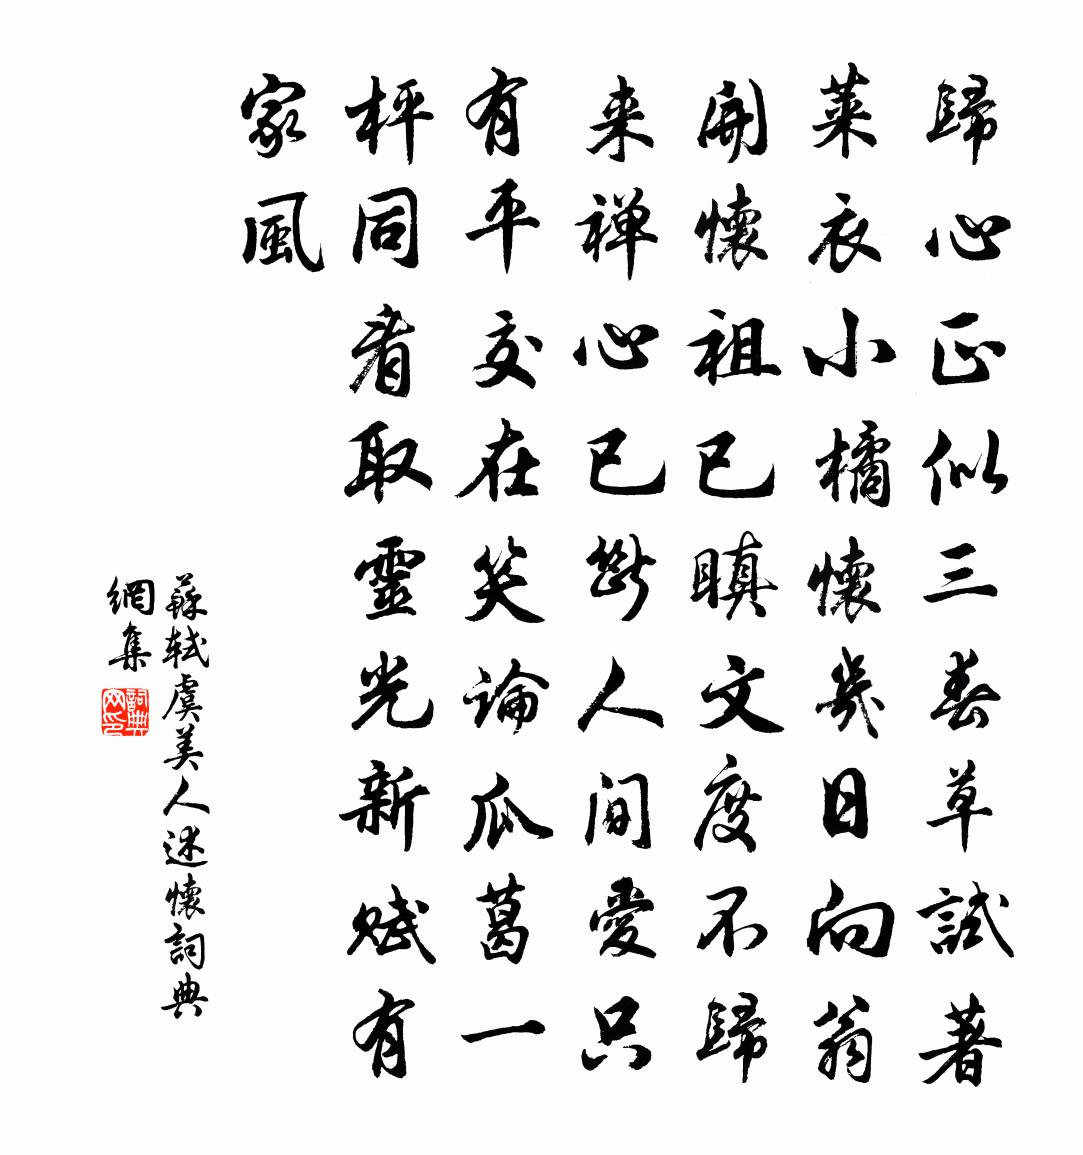 歸心正似三春草試著
萊衣小橘懷幾日向翁
開懷祖已瞋文度不歸
来禅心已斷人間愛只
有平交在笑論瓜葛一
枰同看取靈光新賦有
家風
蘇軾虞美人述懷詞典
網集
詞典網印